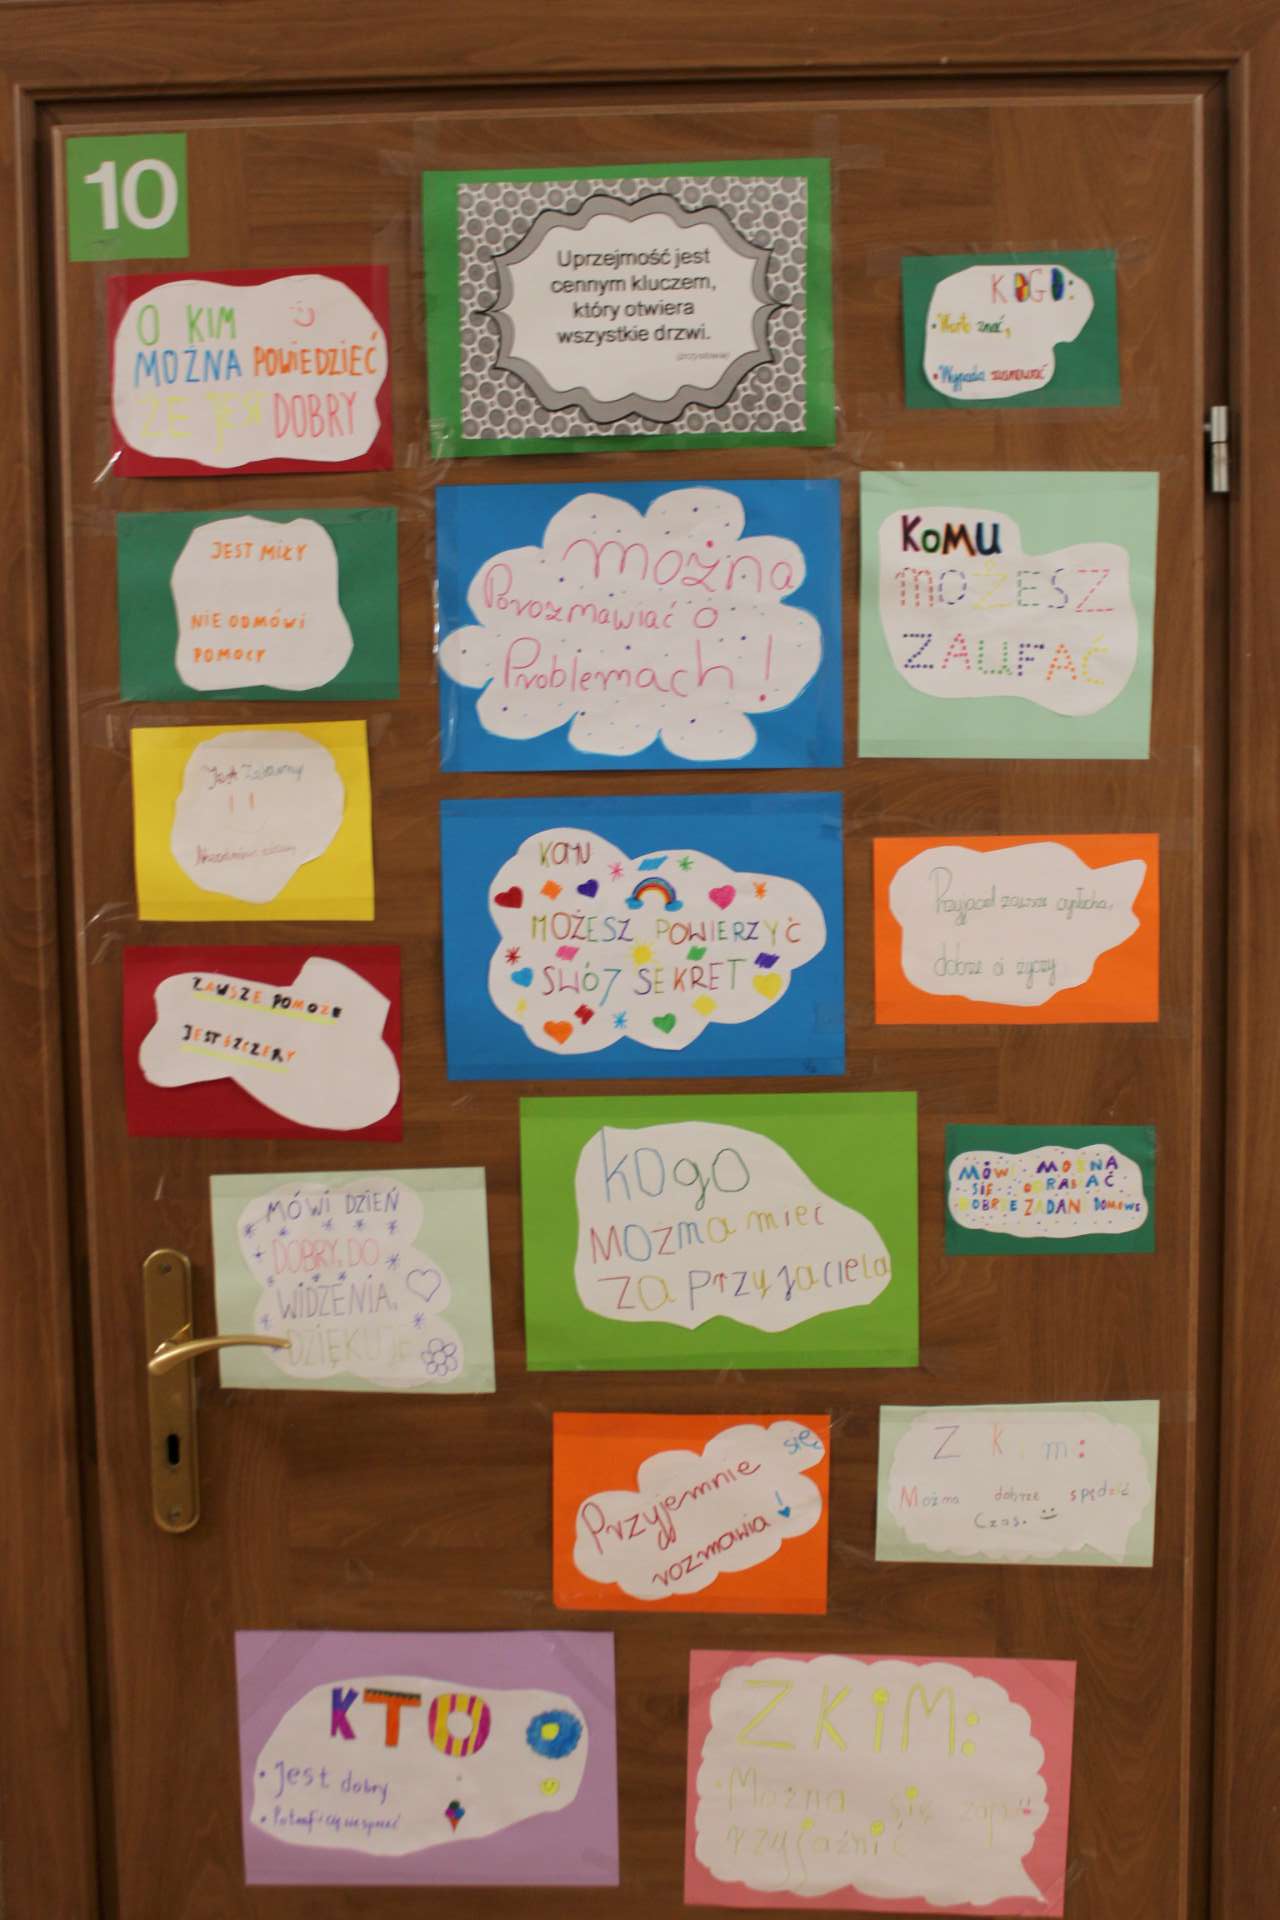 10
Uprzejmość jest
cennym kluczem,
który otwiera
wszystkie drzwi.
(przysłowie)
O KIM
MOŻNA POWIEDZIEĆ
ŻE JEST DOBRY
KOGO:
• Warto znać,
• Wypada szanować
JEST MIŁY
NIE ODMÓWI
POMOCY
Można
Porozmawiać o
Problemach!
KOMU
MOŻESZ
ZAUFAĆ
Jest Zabawny
KOMU
MOŻESZ POWIERZYĆ
SWÓJ SEKRET
Przyjaciel zawsze
dobrze ci życzy
ZAWSZE POMOŻE
JEST SZCZERY
MÓWI DZIEŃ
DOBRY, DO
WIDZENIA,
DZIĘKUJE
kogo
MOZMA miec
ZA przyjaciela
MÓWI MOŻNA
SIĘ ODRABIAĆ
DOBRZE ZADANI DOMOWE
Przyjemnie się
rozmawia!
Z K i m:
Można dobrze spędzić
Czas.
KTO
• Jest dobry
Z KIM:
• Można się zap
rzyjaźnić